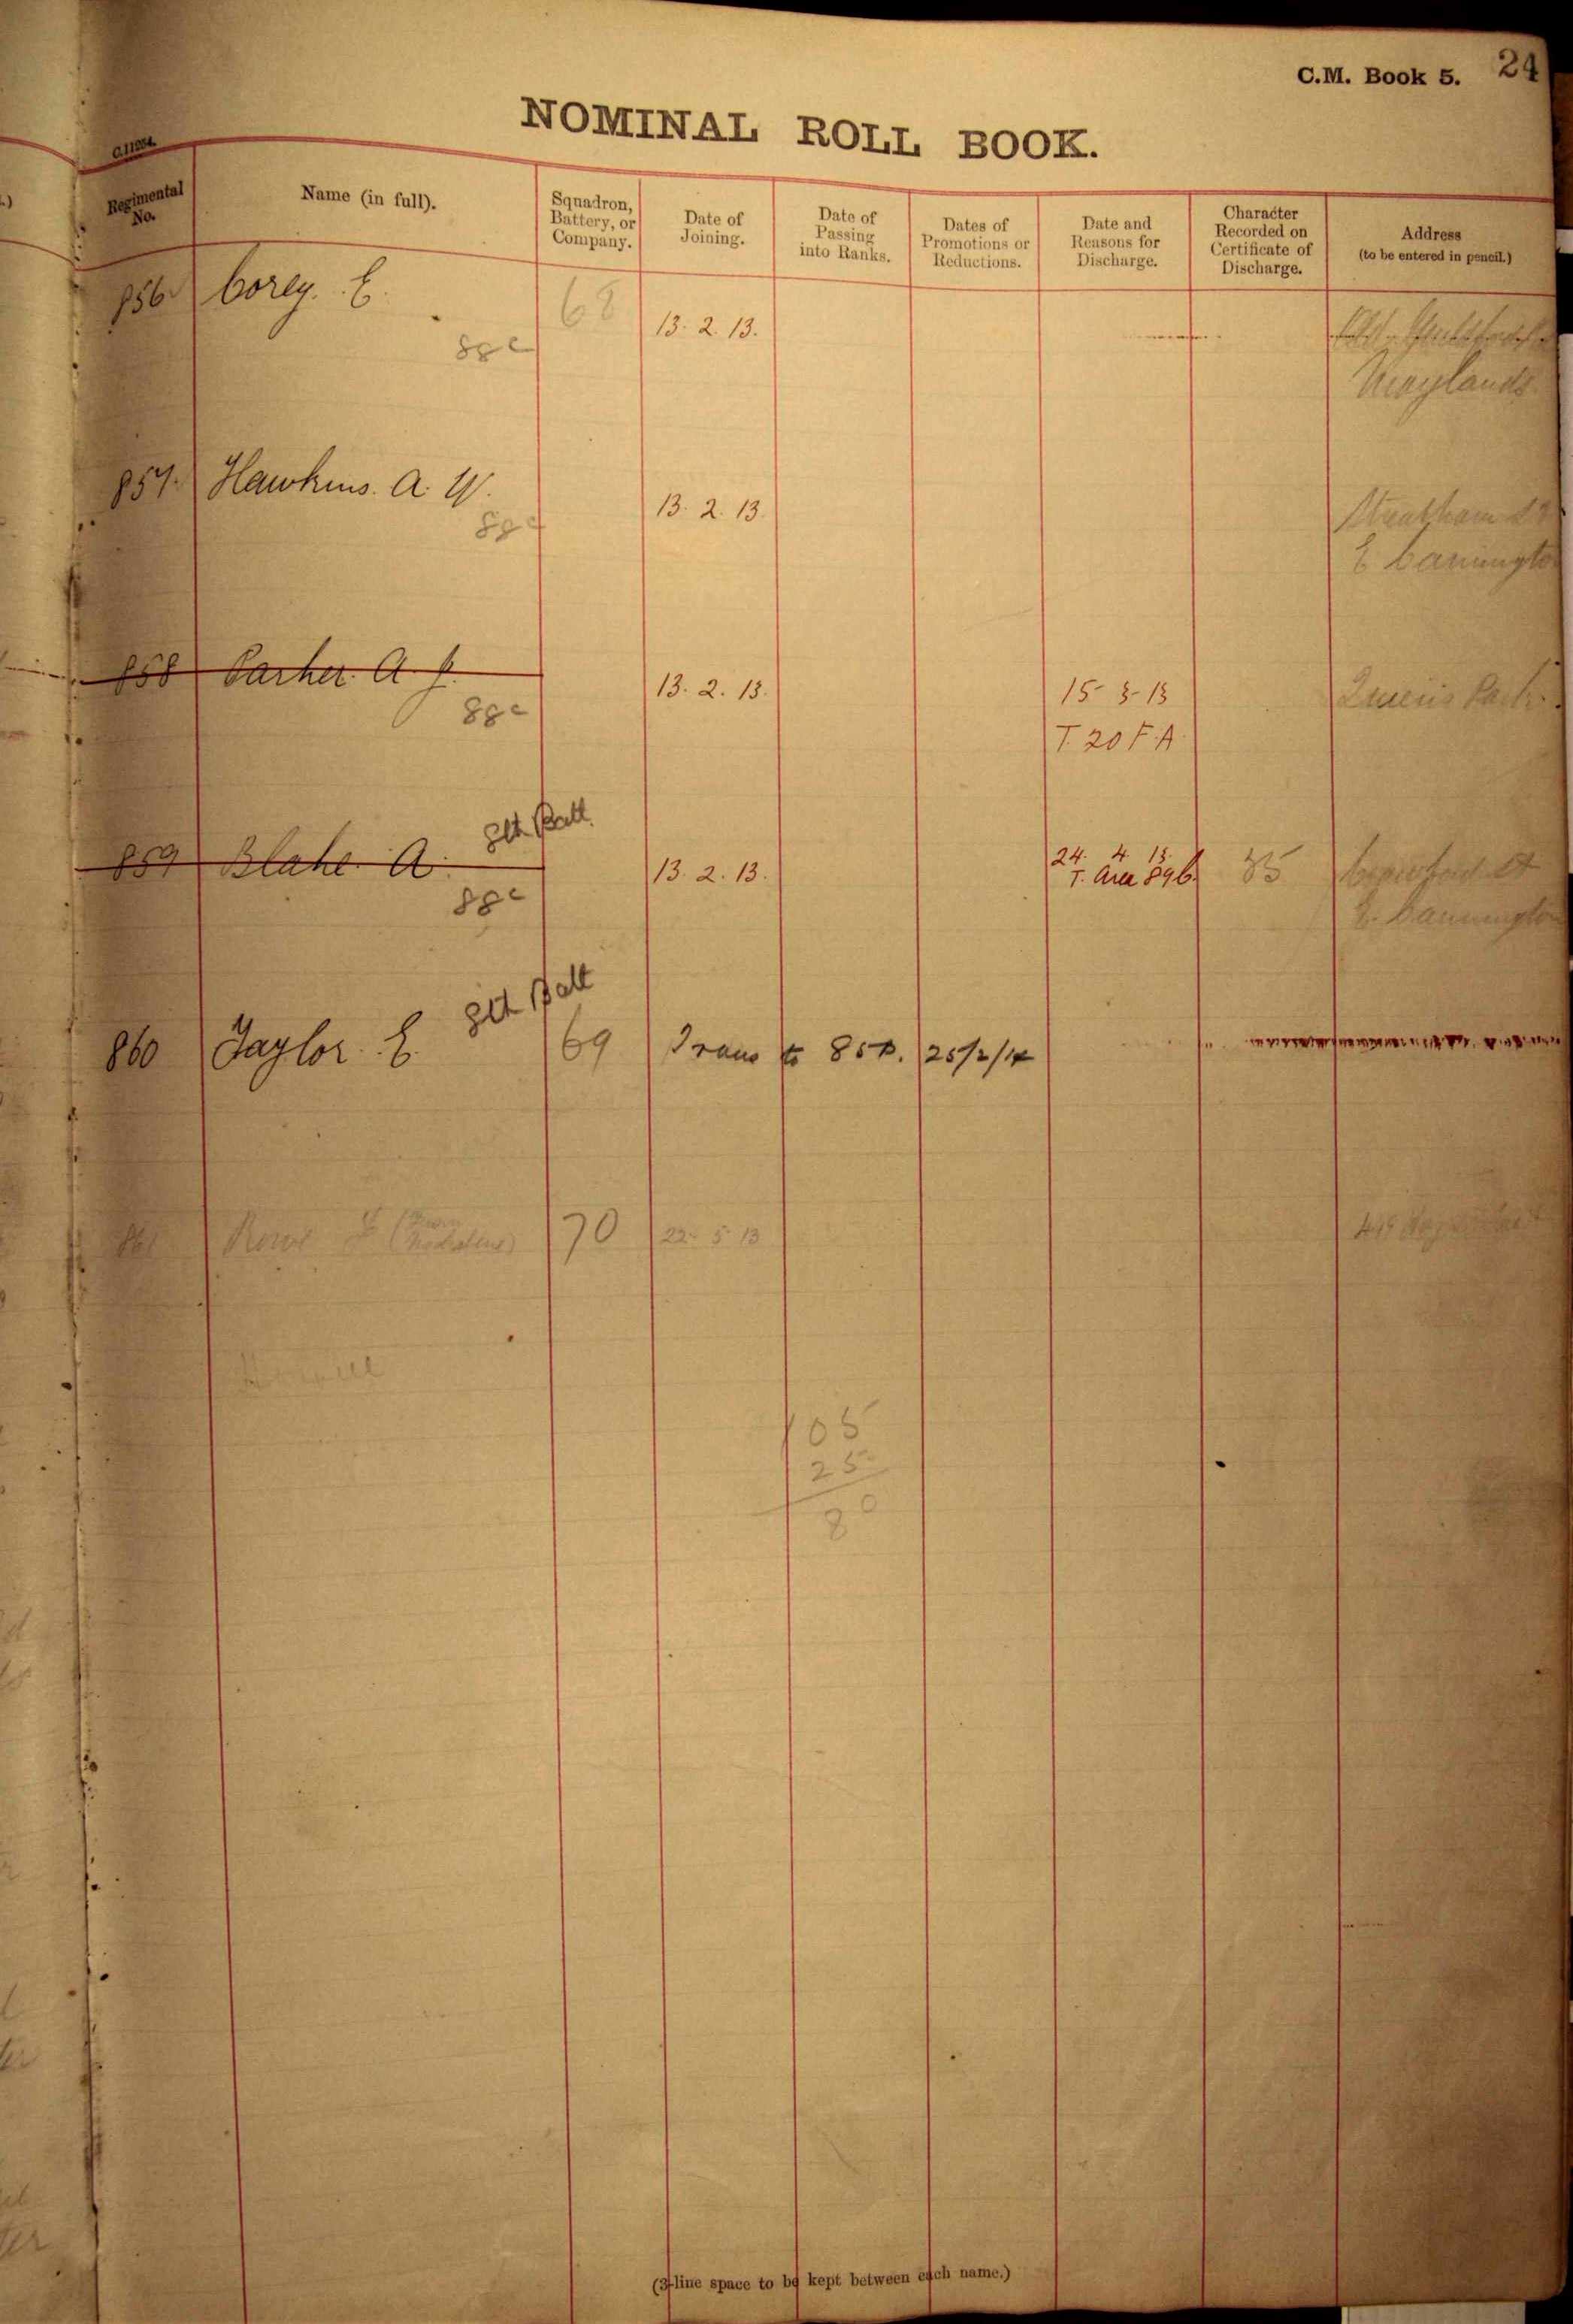 C.M. Book 5. 24
NOMINAL ROLL BOOK.
C.11254.
Regimental No.
Name (in full).
Squadron, Battery, or Company.
Date of Joining.
Date of Passing into Ranks.
Dates of Promotions or Reductions.
Date and Reasons for Discharge.
Character Recorded on Certificate of Discharge.
Address (to be entered in pencil.)
856 Corey. E. 68 13. 2. 13.
88c Maylands
857. Hawkins. A. W. 13. 2. 13.
88c E Cannington
858 Parker. A. J. 13. 2. 13. 15 3 13 Queens Park.
88c T. 20 F.A
8th Batt.
859 Blake. A. 13. 2. 13. 24. 4 13. 35 Crawford St
88c T. Area 89b. E. Cannington
8th Batt
860 Taylor. E. 69 Trans to 85A. 25/2/14
861 Rowe 70 22 5 13
105
25
80
(3-line space to be kept between each name.)